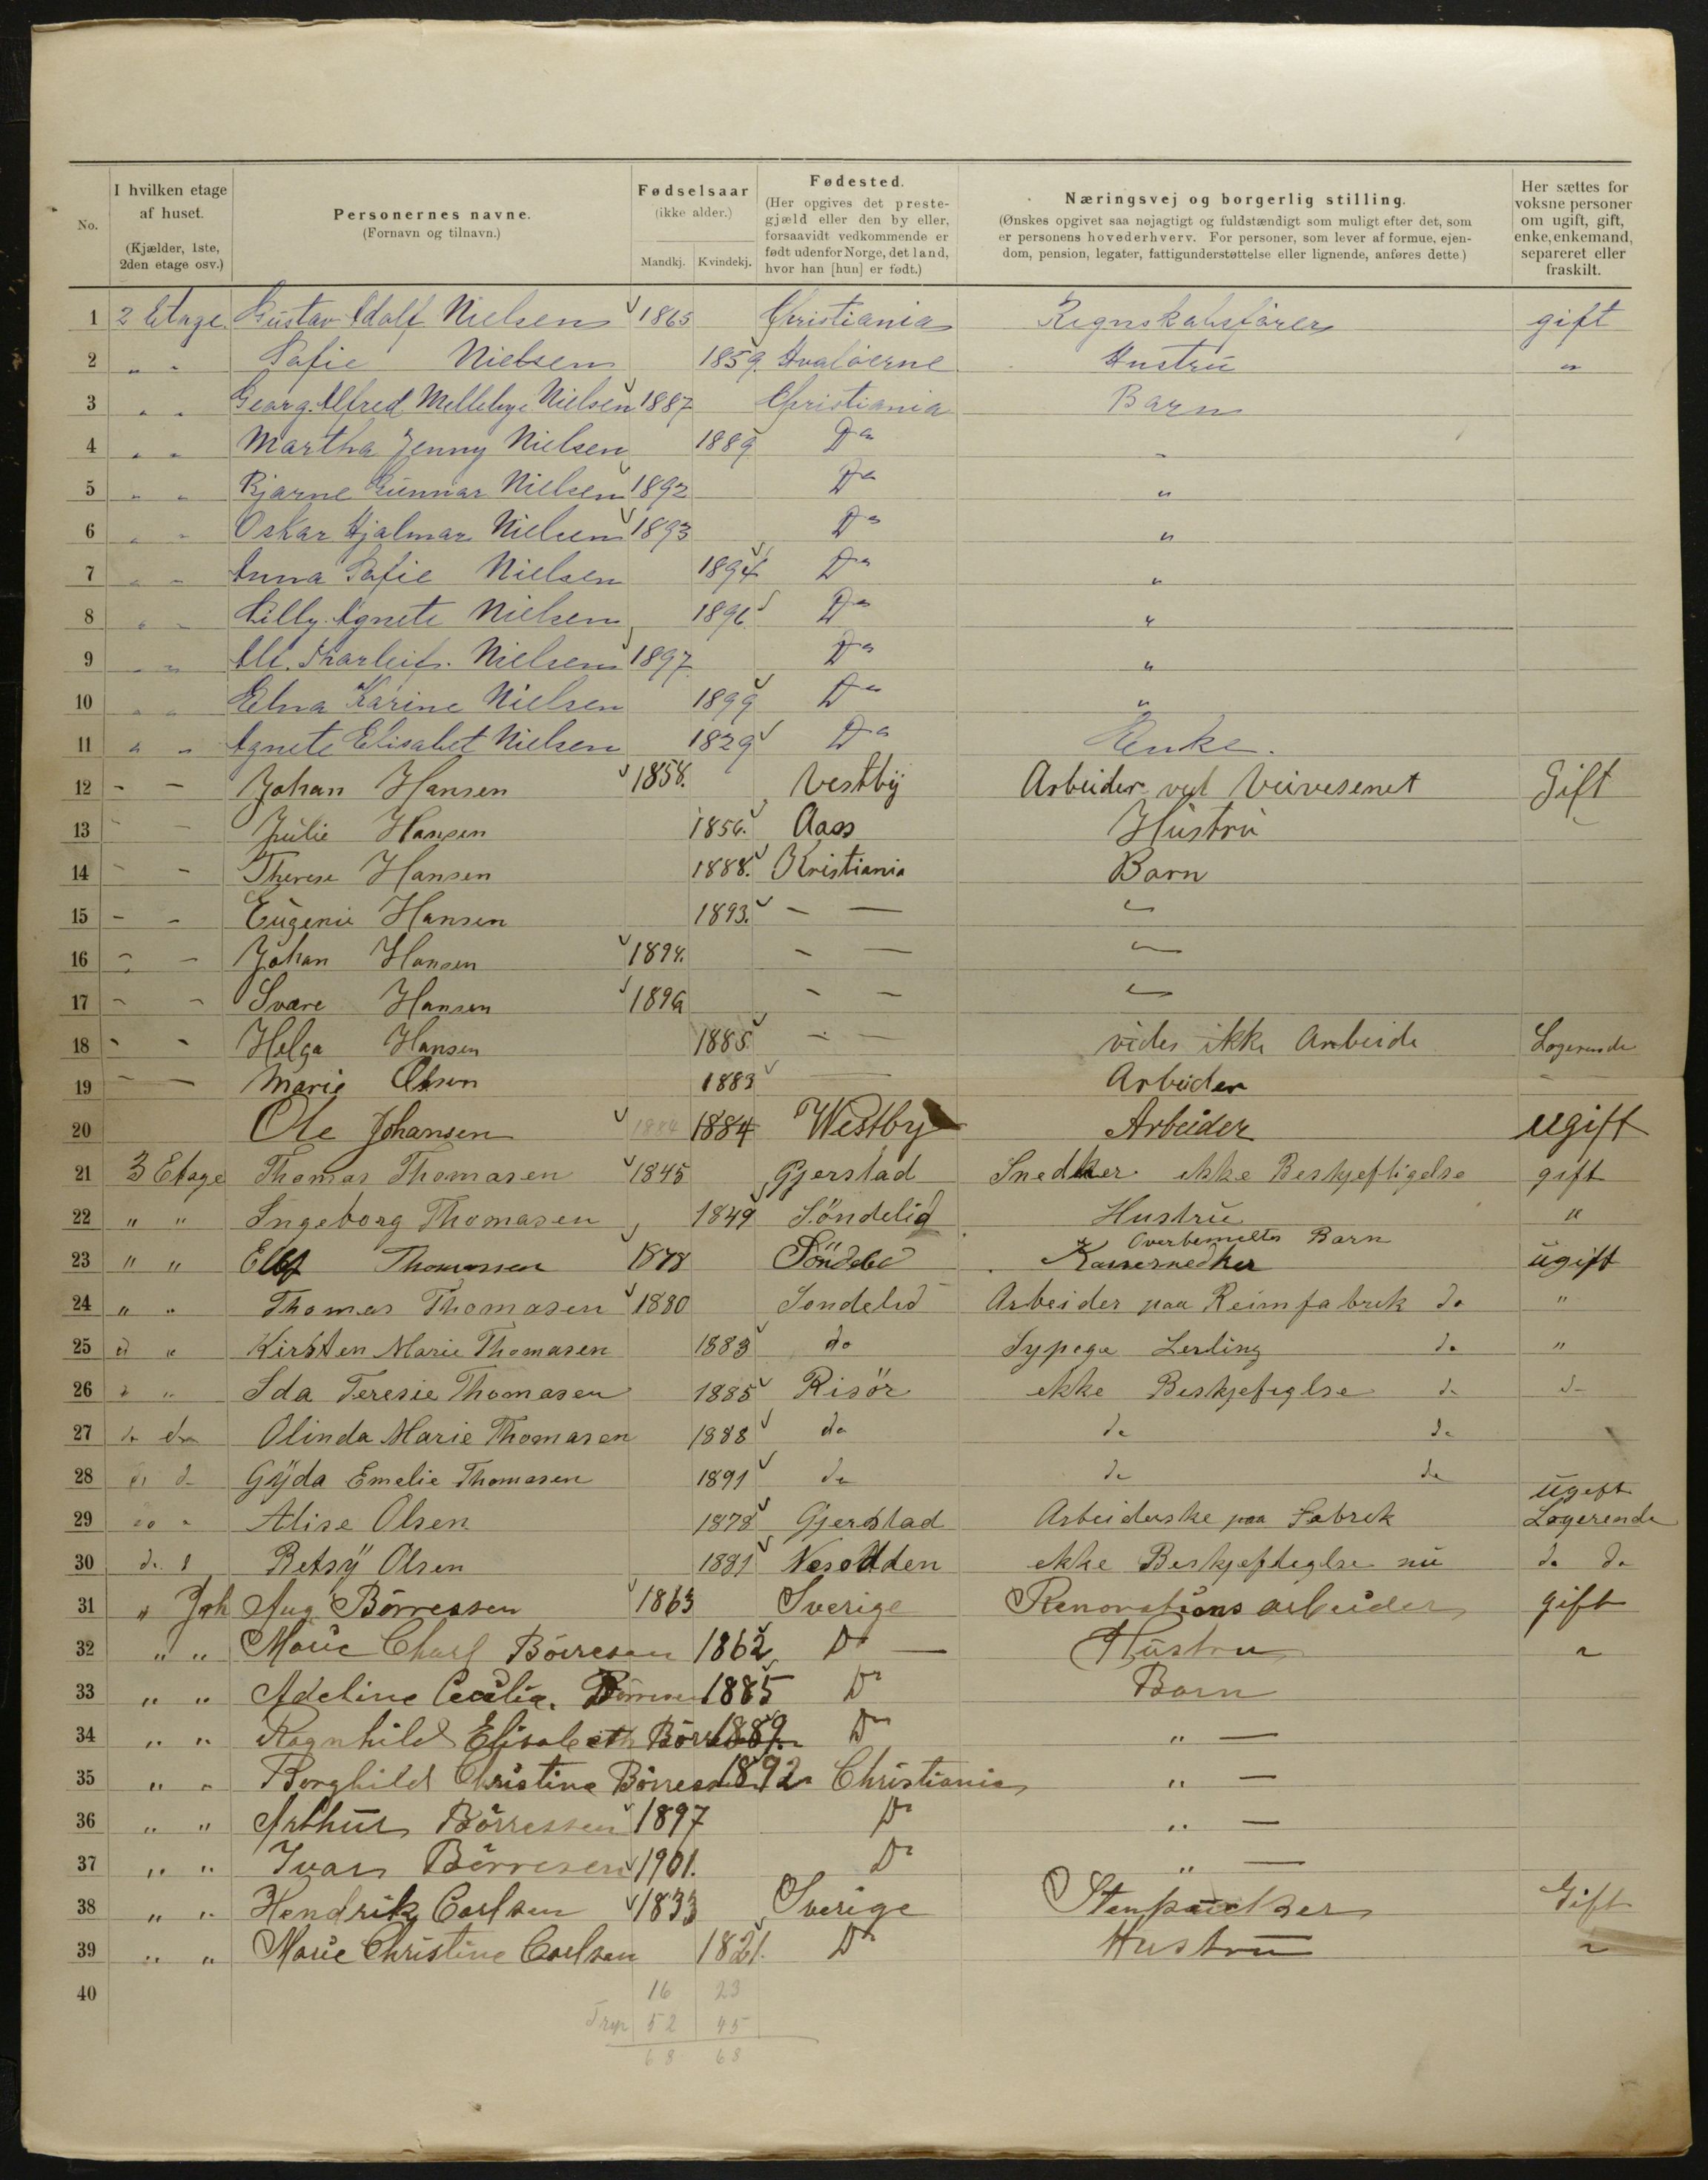 No.
I hvilken etage af huset.
(Kjælder, 1ste, 2den etage osv.)
Personernes navne.
(Fornavn og tilnavn.)
Fødselsaar
(ikke alder.)
Mandkj. Kvindekj.
Fødested.
(Her opgives det prestegjæld eller den by eller, forsaavidt vedkommende er født udenfor Norge, det land, hvor han [hun] er født.)
Næringsvej og borgerlig stilling.
(Ønskes opgivet saa nøjagtigt og fuldstændigt som muligt efter det, som er personens hovederhverv. For personer, som lever af formue, ejendom, pension, legater, fattigunderstøttelse eller lignende, anføres dette)
Her sættes for voksne personer om ugift, gift, enke, enkemand, separeret eller fraskilt.
1 2 Etage Gustav Adolf Nielsen 1865 Christiania Regnskabsfører gift
2 " " Sofie Nielsen 1859 Hvaløerne Hustru "
3 " " Georg Alfred Melleby Nielsen 1887 Christiania Barn
4 " " Martha Jenny Nielsen 1889 Do "
5 " " Bjarne Gunnar Nielsen 1892 Do "
6 " " Oskar Hjalmar Nielsen 1893 Do "
7 " " Anna Sofie Nielsen 1894 Do "
8 " " Lilly Agnete Nielsen 1896 Do "
9 " " Thorleif Nielsen 1897 Do "
10 " " Elna Karine Nielsen 1899 Do "
11 " " Agnete Elisabet Nielsen 1829 Do Enke.
12 - - Johan Hansen 1858. Vestby Arbeider ved Veivesenet Gift
13 - - Julie Hansen 1856. Aass Hustru
14 - - Therese Hansen 1888. Kristiania Barn
15 - - Eugenie Hansen 1893. - - "
16 - - Johan Hansen 1894. - - "
17 - - Svare Hansen 1896 - - "
18 - - Helga Hansen 1885 - - vides ikke Arbeide Logerende
19 - - Marie Olsen 1883 — Arbeider -
20 Ole Johansen 1884 1884 Westby Arbeider ugift
21 3 Etage Thomas Thomasen 1845 Gjerstad Snedker ekke Beskjeftigelse gift
22 " " Ingeborg Thomasen 1849 Söndelid Hustru "
23 " " Thomassen 1878 Söndeled Overbemelte Barn ugift
24 " " Thomas Thomasen 1880 Sondelid Arbeider paa Reimfabrek do "
25 " " Kirsten Marie Thomasen 1883 do Sypege Lerling do "
26 " " Ida Teresie Thomasen 1885 Risör ekke Beskjefeglse do do
27 do do Olinda Marie Thomasen 1888 do do do
28 do do Gyda Emelie Thomasen 1891 do do do
29 do " Alise Olsen 1878 Gjerstad Arbeiderske paa Fabrek ugeft Logerende
30 do Betsy Olsen 1881 Nesodden ekke Beskjefteglse nu do do
31 " Joh Aug Börressen 1863 Sverige Renovations arbeider gift
32 " " Marie Charl Börresen 1862 Do — Hustru "
33 " " Adeline Cecilia. Börresen 1885 Do Barn
34 " " Ragnhild Elisabeth 1889. Do " —
35 " " Borghild Christine Börresen 1892 Christiania " —
36 " " Arthur Börressen 1897 Do " —
37 " " Ivar Börresen 1901. Do " —
38 " " Hendrik Carlsen 1833 Sverige Stenpukker Gift
39 " " Marie Christine Carlsen 1821. Do Hustru "
40
16 23
52 45
68 68